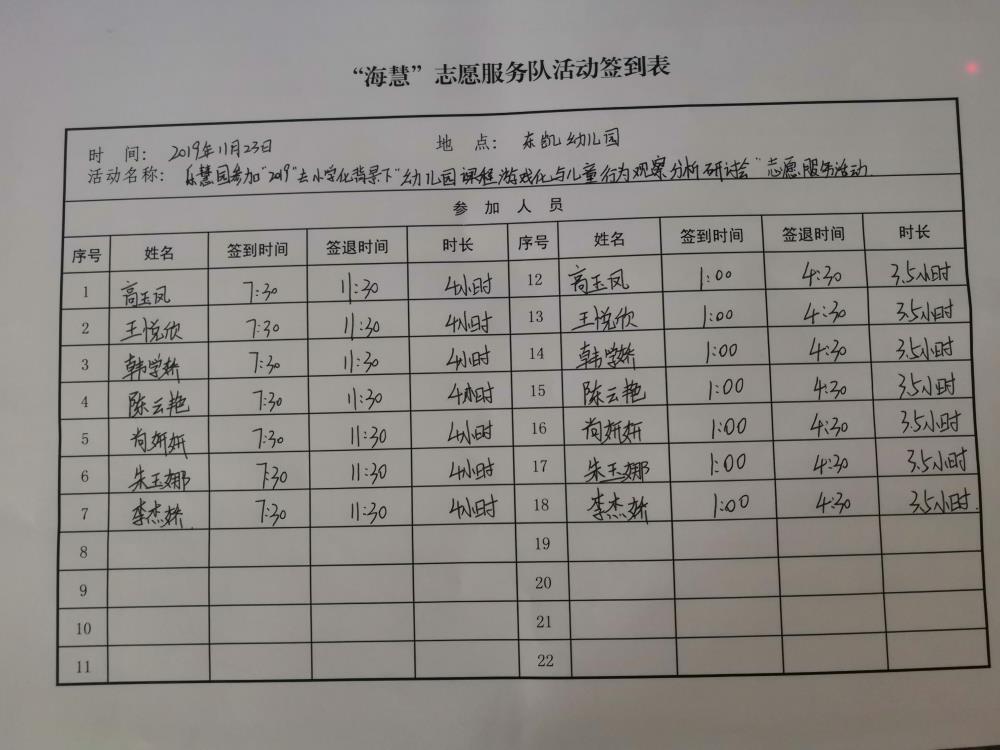 “海慧”志愿服务队活动签到表
时 间： 2019年11月23日 地 点： 东凯幼儿园
活动名称： 乐慧园参加“2019”去小学化背景下“幼儿园课程游戏化与儿童行为观察分析研讨会”志愿服务活动.
参 加 人 员
序号 姓名 签到时间 签退时间 时长 序号 姓名 签到时间 签退时间 时长
1 高玉凤 7:30 11:30 4小时 12 高玉凤 1:00 4:30 3.5小时
2 王悦欣 7:30 11:30 4小时 13 王悦欣 1:00 4:30 3.5小时
3 韩学娇 7:30 11:30 4小时 14 韩学娇 1:00 4:30 3.5小时
4 陈云艳 7:30 11:30 4小时 15 陈云艳 1:00 4:30 3.5小时
5 尚妍妍 7:30 11:30 4小时 16 尚妍妍 1:00 4:30 3.5小时
6 朱玉娜 7:30 11:30 4小时 17 朱玉娜 1:00 4:30 3.5小时
7 李杰娇 7:30 11:30 4小时 18 李杰娇 1:00 4:30 3.5小时.
8 19
9 20
10 21
11 22